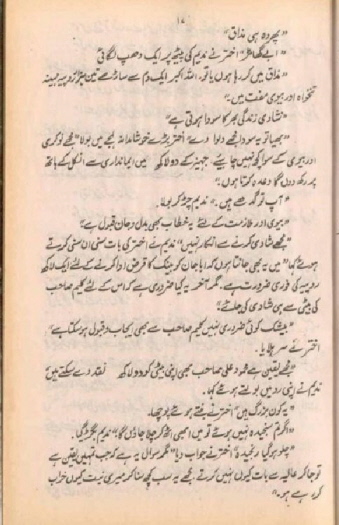 ۱۷
"پھر وہ ہی مذاق"
"ابے گھامڑ" اختر نے ندیم کی پیٹھ پر ایک دھپ لگائی
"مذاق میں کر رہا ہوں یا تو، اللہ اکبر ایک دم سے ساڑھے تین ہزار روپیہ مہینہ
تنخواہ اور بیوی مفت میں۔"
"شادی زندگی بھر کا سودا ہوتی ہے"
"بھیا تو یہ سودا مجھے دلوا دے" اختر بڑے خوشامدانہ لہجے میں بولا "مجھے نوکری
اور بیوی کے سوا کچھ نہیں چاہیئے جہیز کے دو لاکھ میں ایمانداری سے انکل کے ہاتھ
پر رکھ دوں گا وعدہ کرتا ہوں۔"
"آپ تو گدھے ہیں۔" ندیم چڑ کر بولا۔
"بیوی اور ملازمت کے لئے یہ خطاب بھی بدل و جان قبول ہے"
"مجھے شادی کرنے سے انکار نہیں" ندیم نے اختر کی بات سنی ان سنی کرتے
ہوئے کہا "میں یہ بھی جانتا ہوں کہ ابا جان کو بینک کا قرض ادا کرنے کے لئے ایک لاکھ
روپیہ کی فوری ضرورت ہے، مگر آخر یہ کیا ضروری ہے کہ اس کے لئے کلیم صاحب
کی بیٹی سے ہی شادی کی جائے"
"بیشک کوئی ضروری نہیں کلیم صاحب سے بھی ایجاب و قبول ہو سکتا ہے"
اختر نے سر ہلایا۔
"مجھے یقین ہے محمود علی صاحب بھی اپنی بیٹی کو دو لاکھ نقد دے سکتے ہیں"
ندیم نے اپنی رو میں بولتے ہوئے کہا۔
"یہ کون بزرگ ہیں" اختر نے ہنستے ہوئے پوچھا۔
"اگر تم سنجیدہ نہیں ہوئے تو میں ابھی اٹھ کر چلا جاؤں گا" ندیم بگڑ گیا۔
"چلو ہو گیا رنجیدہ" اختر نے جواب دیا "مگر سوال یہ ہے کہ جب تمہیں یقین ہے
تو جا کر عالیہ سے بات کیوں نہیں کرتے، مجھے یہ سب کچھ سنا کر میری نیت کیوں خراب
کر رہے ہو۔"